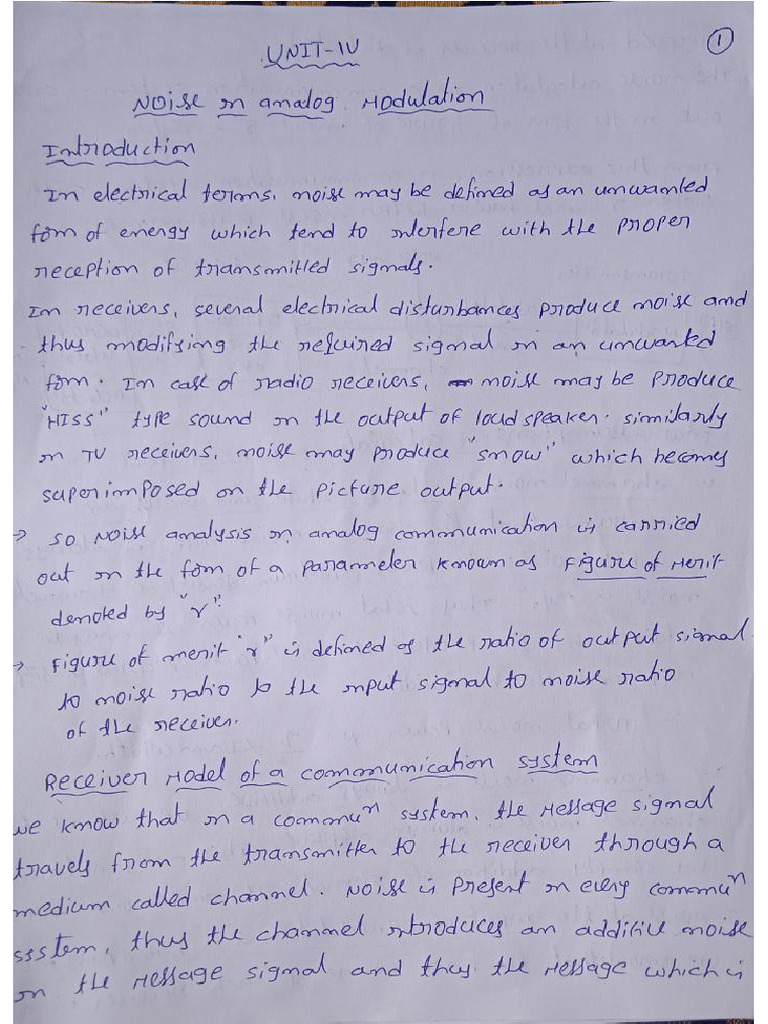 UNIT-IV
1
Noise in analog Modulation
Introduction
In electrical terms, noise may be defined as an unwanted
form of energy which tend to interfere with the proper
reception of transmitted signals.
In receivers, several electrical disturbances produce noise and
thus modifying the required signal in an unwanted
form. In case of radio receivers, noise may be produce
"HISS" type sound in the output of loud speaker. similarly
in TV receivers, noise may produce "snow" which becomes
superimposed on the picture output.
→ so Noise analysis in analog communication is carried
out in the form of a parameter known as Figure of Merit
denoted by "γ".
→ Figure of merit "γ" is defined as the ratio of output signal
to noise ratio to the input signal to noise ratio
of the receiver.
Receiver Model of a communication system
we know that in a commuⁿ system, the Message signal
travels from the transmitter to the receiver through a
medium called channel. Noise is present in every commuⁿ
system, thus the channel introduces an additive noise
on the Message signal and thus the Message which is